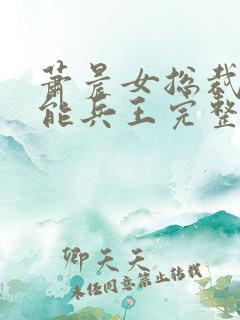 萧晨女总裁
能兵王完整
卿天天
未经同意禁止转载